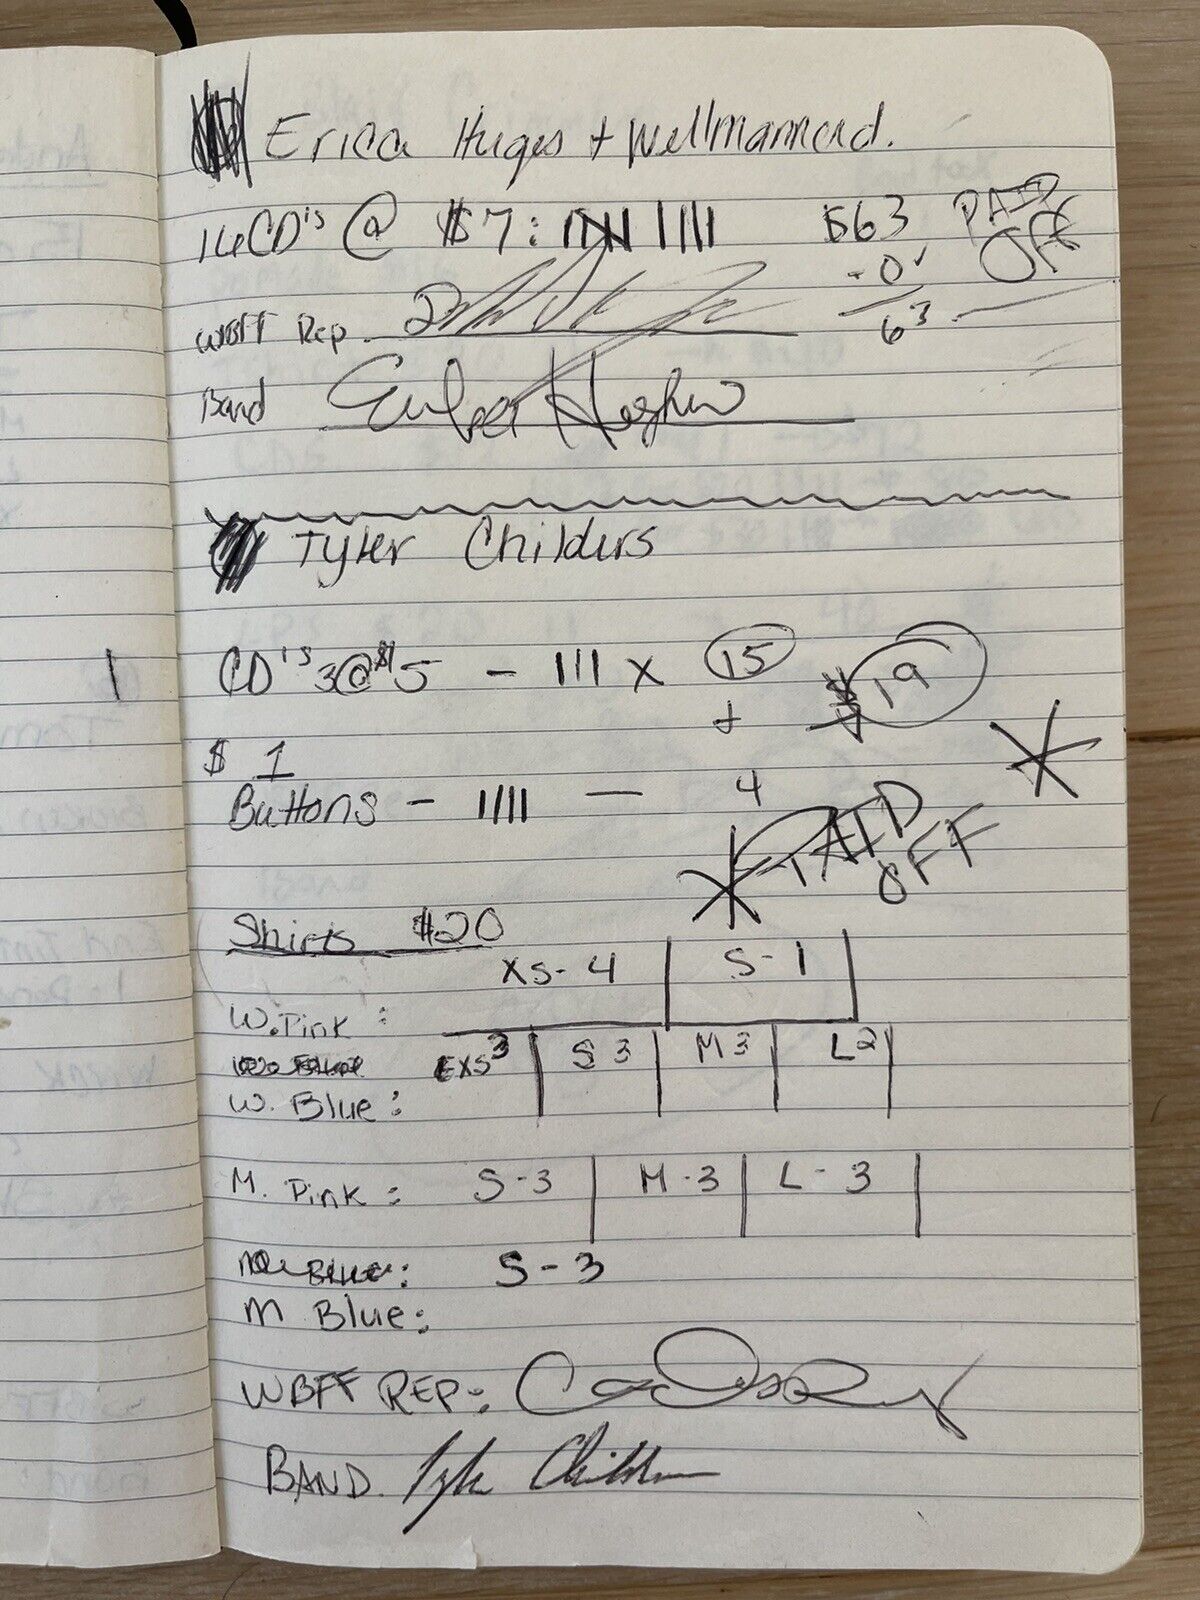 Erica Huges + Wellmannerd.
16 CD's @ $7: |||| |||| $63 PAID OFF
- 0
63
WBFF Rep.
Band
Tyler Childers
CD's 3@$5 - ||| x 15 $19
+
$ 1
Buttons - |||| — 4
PAID OFF
Shirts $20
XS-4 S-1
W. Pink:
XS 3 S 3 M 3 L 2
W. Blue:
M. Pink: S-3 M-3 L-3
S-3
M Blue:
WBFF REP:
BAND. Tyler Childers